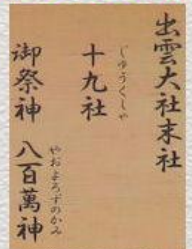 出雲大社末社
十九社
じゅうくしゃ
御祭神 八百萬神
やおよろずのかみ